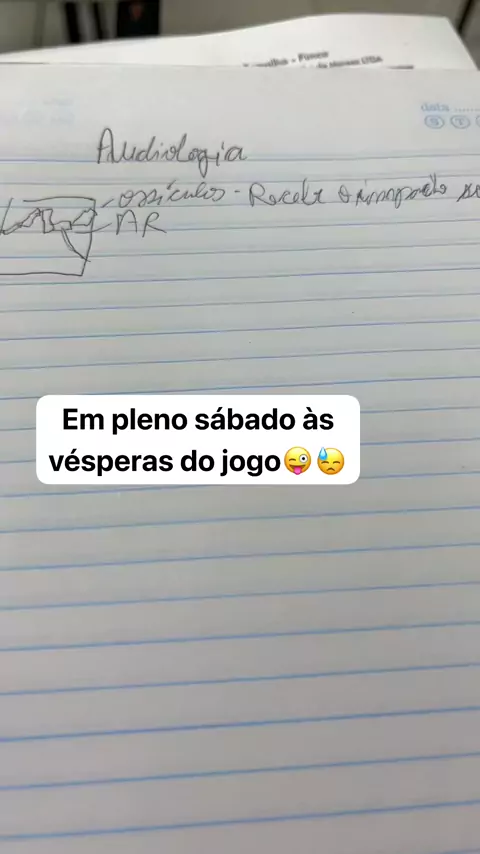 data ......
S T
Audiologia
ossículos - Recebe o impacto
AR
Em pleno sábado às
vésperas do jogo😜😓